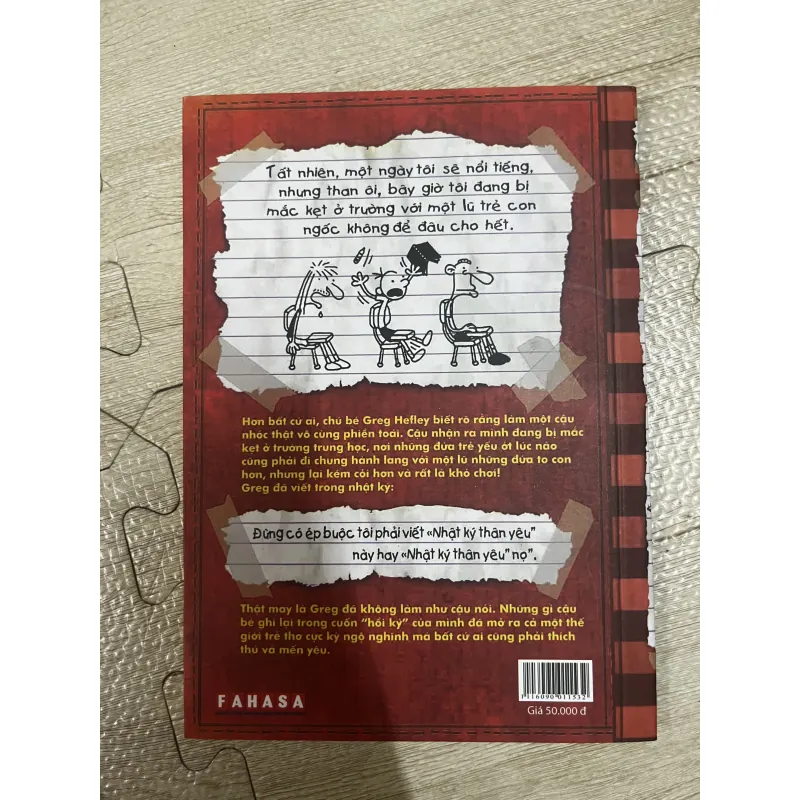 Tất nhiên, một ngày tôi sẽ nổi tiếng,
nhưng than ôi, bây giờ tôi đang bị
mắc kẹt ở trường với một lũ trẻ con
ngốc không để đâu cho hết.
Hơn bất cứ ai, chú bé Greg Hefley biết rõ rằng làm một cậu
nhóc thật vô cùng phiền toái. Cậu nhận ra mình đang bị mắc
kẹt ở trường trung học, nơi những đứa trẻ yếu ớt lúc nào
cũng phải đi chung hành lang với một lũ những đứa to con
hơn, nhưng lại kém cỏi hơn và rất là khó chơi!
Greg đã viết trong nhật ký:
Đừng có ép buộc tôi phải viết «Nhật ký thân yêu"
này hay «Nhật ký thân yêu" nọ".
Thật may là Greg đã không làm như cậu nói. Những gì cậu
bé ghi lại trong cuốn "hồi ký" của mình đã mở ra cả một thế
giới trẻ thơ cực kỳ ngộ nghĩnh mà bất cứ ai cũng phải thích
thú và mến yêu.
FAHASA
1116090011532
Giá 50.000 đ